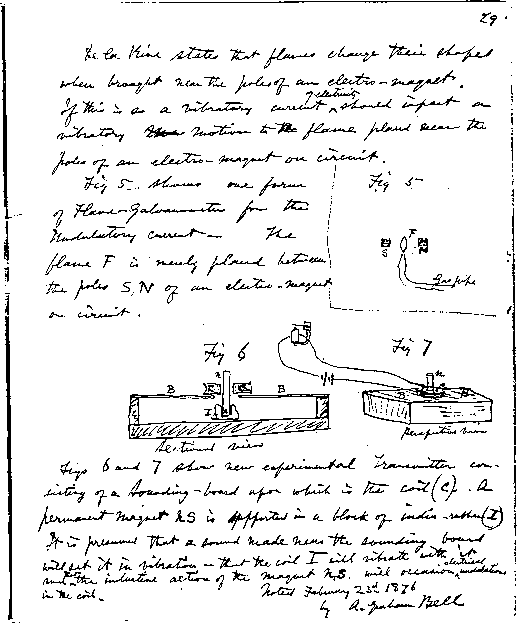 29.
De la Rive states that flames change their shapes
when brought near the poles of an electro-magnet.
If this is so a vibratory current of electricity should impart a
vibratory motion to the flame placed near the
poles of an electro-magnet on circuit.
Fig 5. shows one form
of Flame-Galvanometer for the
Undulatory current — The
flame F is merely placed between
the poles S, N of an electro-magnet
on circuit.
Fig 5
S F N
Gas pipe
Fig 6
n
B C C B
I
Sectional view
Fig 7
n
B B
Perspective view
Figs 6 and 7 show new experimental Transmitter con-
sisting of a Sounding-board upon which is the coil (C). A
permanent magnet NS is supported in a block of india-rubber (I)
It is presumed that a sound made near the sounding board
will set it in vibration – that the coil I will vibrate with it
and the inductive action of the magnet N.S. will occasion electrical undulations
in the coil.
Noted February 23rd 1876
by A. Graham Bell